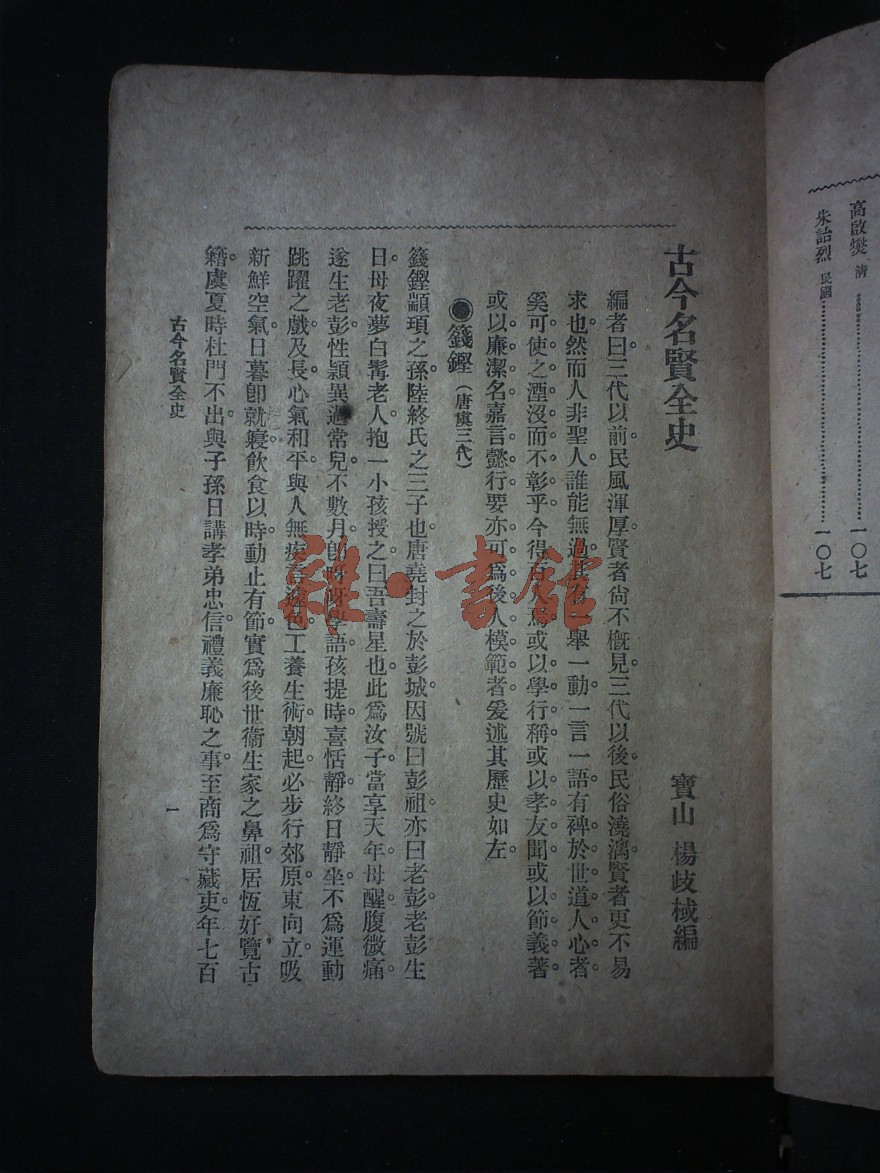 高啟爕 清 一〇七
朱詒烈 民國 一〇七
古今名賢全史
寶山 楊歧棫編
編者曰三代以前民風渾厚賢者尙不槪見三代以後民俗澆漓賢者更不易
求也然而人非聖人誰能無過其有一舉一動一言一語有裨於世道人心者
奚可使之湮沒而不彰乎今得 或以學行稱或以孝友聞或以節義著
或以廉潔名嘉言懿行要亦可爲後人模範者爰述其歷史如左
●籛鏗(唐虞三代)
籛鏗顓頊之孫陸終氏之三子也唐堯封之於彭城因號曰彭祖亦曰老彭老彭生
日母夜夢白髯老人抱一小孩授之曰吾壽星也此爲汝子當享天年母醒腹微痛
遂生老彭性穎異過常兒不數月卽呀呀學語孩提時喜恬靜終日靜坐不爲運動
跳躍之戲及長心氣和平與人無疾言遽色工養生術朝起必步行郊原東向立吸
新鮮空氣日暮卽就寢飲食以時動止有節實爲後世衞生家之鼻祖居恆好覽古
籍虞夏時杜門不出與子孫日講孝弟忠信禮義廉恥之事至商爲守藏吏年七百
古今名賢全史
一
雜·書館